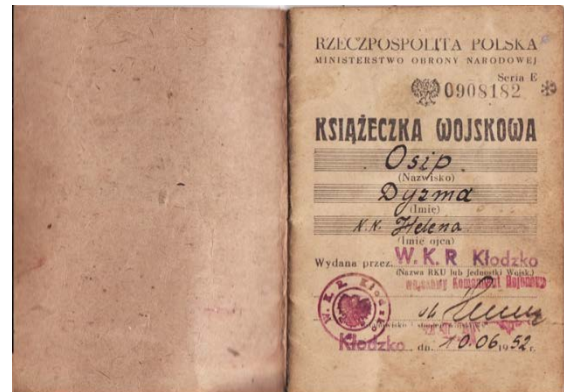 RZECZPOSPOLITA POLSKA
MINISTERSTWO OBRONY NARODOWEJ
Seria E
0908182
KSIĄŻECZKA WOJSKOWA
Osip
(Nazwisko)
Dyzma
(Imię)
N.N. Helena
(Imię ojca)
Wydana przez W. K. R Kłodzko
(Nazwa RKU lub Jednostki Wojsk.)
Wojskowy Komendant Rejonowy
W. K. R. Kłodzko
Kłodzko dn. 10.06.1952 r.